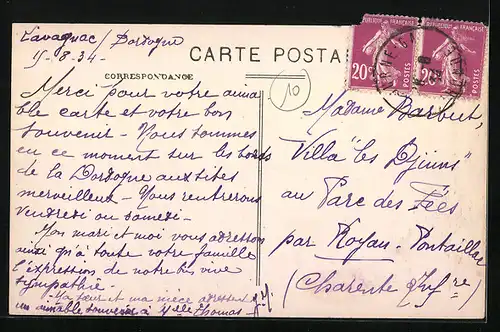 Lavagnac / Dordogne
15-8.34-
CARTE POSTA
CORRESPONDANCE
10
REPUBLIQUE FRANÇAISE
20c
POSTES
REPUBLIQUE FRANÇAISE
20c
POSTES
Merci pour votre aima
ble carte et votre bon
souvenir - Nous sommes
en ce moment sur les bords
de la Dordogne aux sites
merveilleux - Nous rentrerons
vendredi ou samedi -
Mon mari et moi vous adressons
ainsi qu'à toute votre famille
l'expression de notre bien vive
sympathie -
Ma sœur et ma nièce adressent
un aimable souvenir à Melle Thomas
Madame Barbut,
Villa "les Djinns"
au Parc des Fées
par Royan - Pontaillac
(Charente Infre)